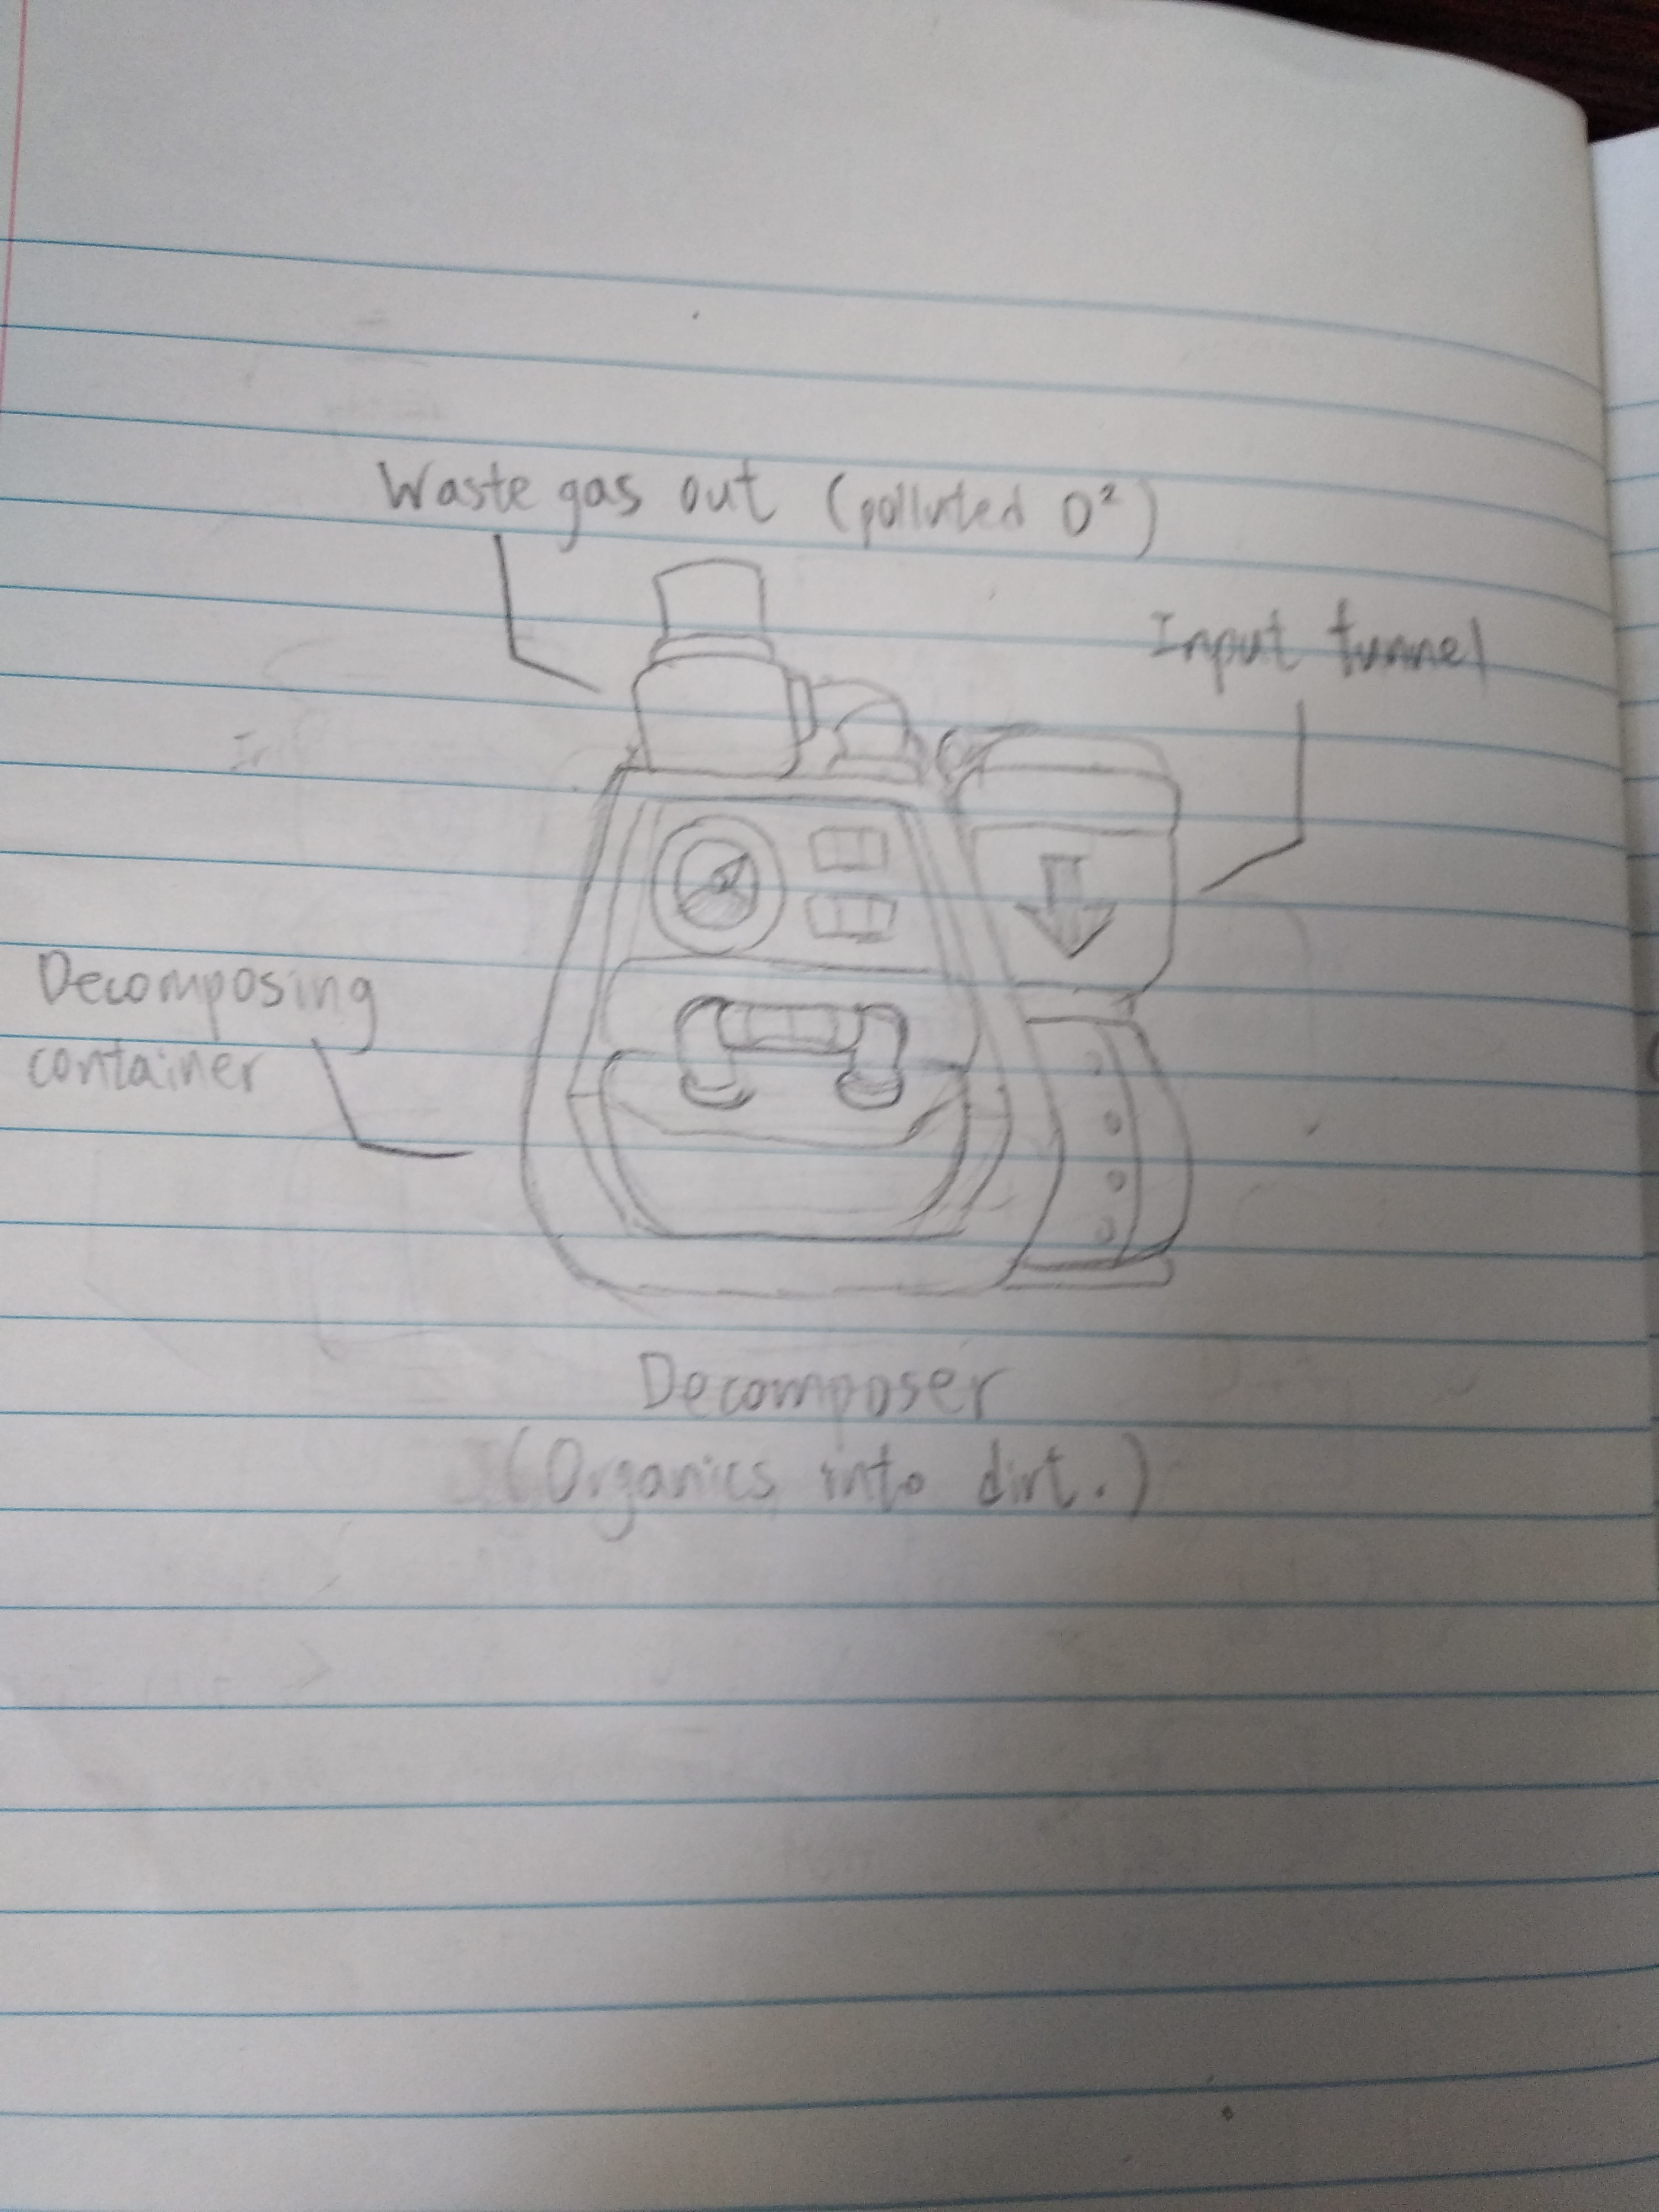 Waste gas out (polluted O²)
Input tunnel
Decomposing
container
Decomposer
(Organics into dirt.)